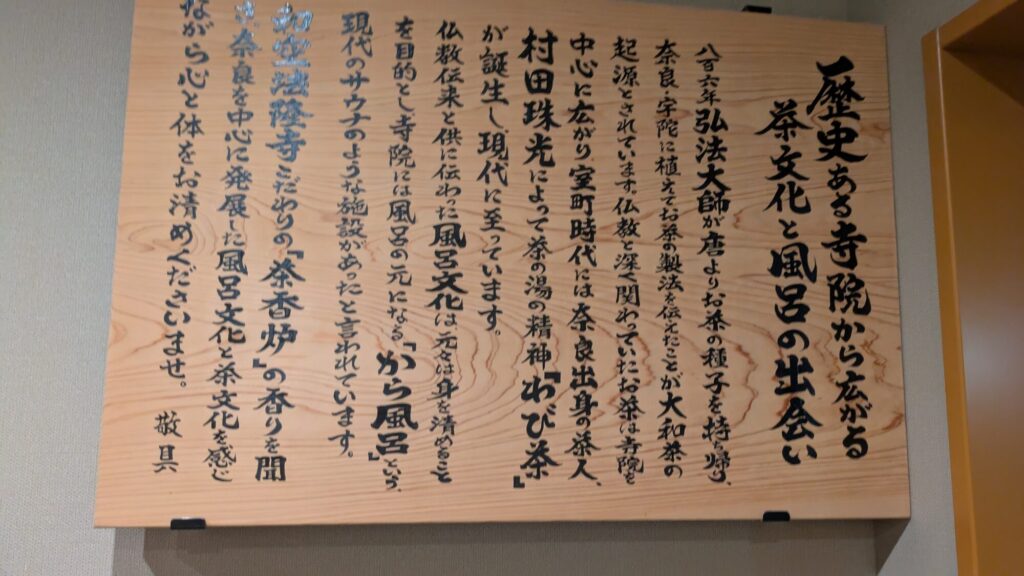 歴史ある寺院から広がる
茶文化と風呂の出会い
八百六年弘法大師が唐よりお茶の種子を持ち帰り、
奈良、宇陀に植えてお茶の製法を伝えたことが大和茶の
起源とされています。仏教と深く関わっていたお茶は寺院を
中心に広がり、室町時代には奈良出身の茶人、
村田珠光によって茶の湯の精神『わび茶』
が誕生し、現代に至っています。
仏教伝来と供に伝わった風呂文化は元々は身を清めること
を目的とし寺院には風呂の元になる『から風呂』という、
現代のサウナのような施設があったと言われています。
和空法隆寺こだわりの『茶香炉』の香りを聞
き、奈良を中心に発展した風呂文化と茶文化を感じ
ながら心と体をお清めくださいませ。
敬具